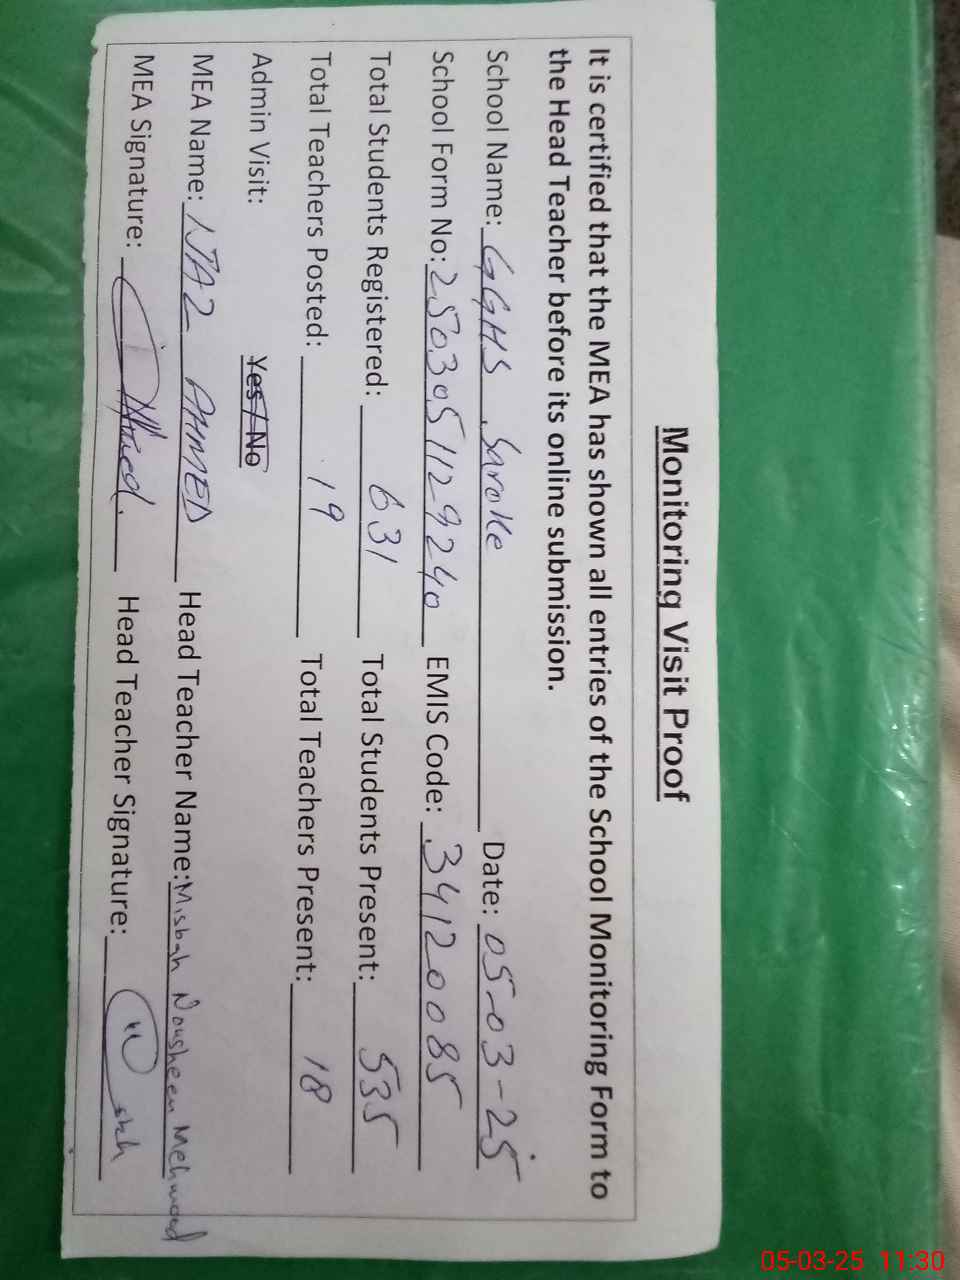 Monitoring Visit Proof
It is certified that the MEA has shown all entries of the School Monitoring Form to
the Head Teacher before its online submission.
School Name: GGHS Saroke Date: 05-03-25
School Form No: 250305112924 0 EMIS Code: 34120085
Total Students Registered: 631 Total Students Present: 535
Total Teachers Posted: 19 Total Teachers Present: 18
Admin Visit: Yes / No
MEA Name: IJAZ AHMED Head Teacher Name: Misbah Nousheen Mehmood
MEA Signature: Head Teacher Signature:
05-03-25 11:30